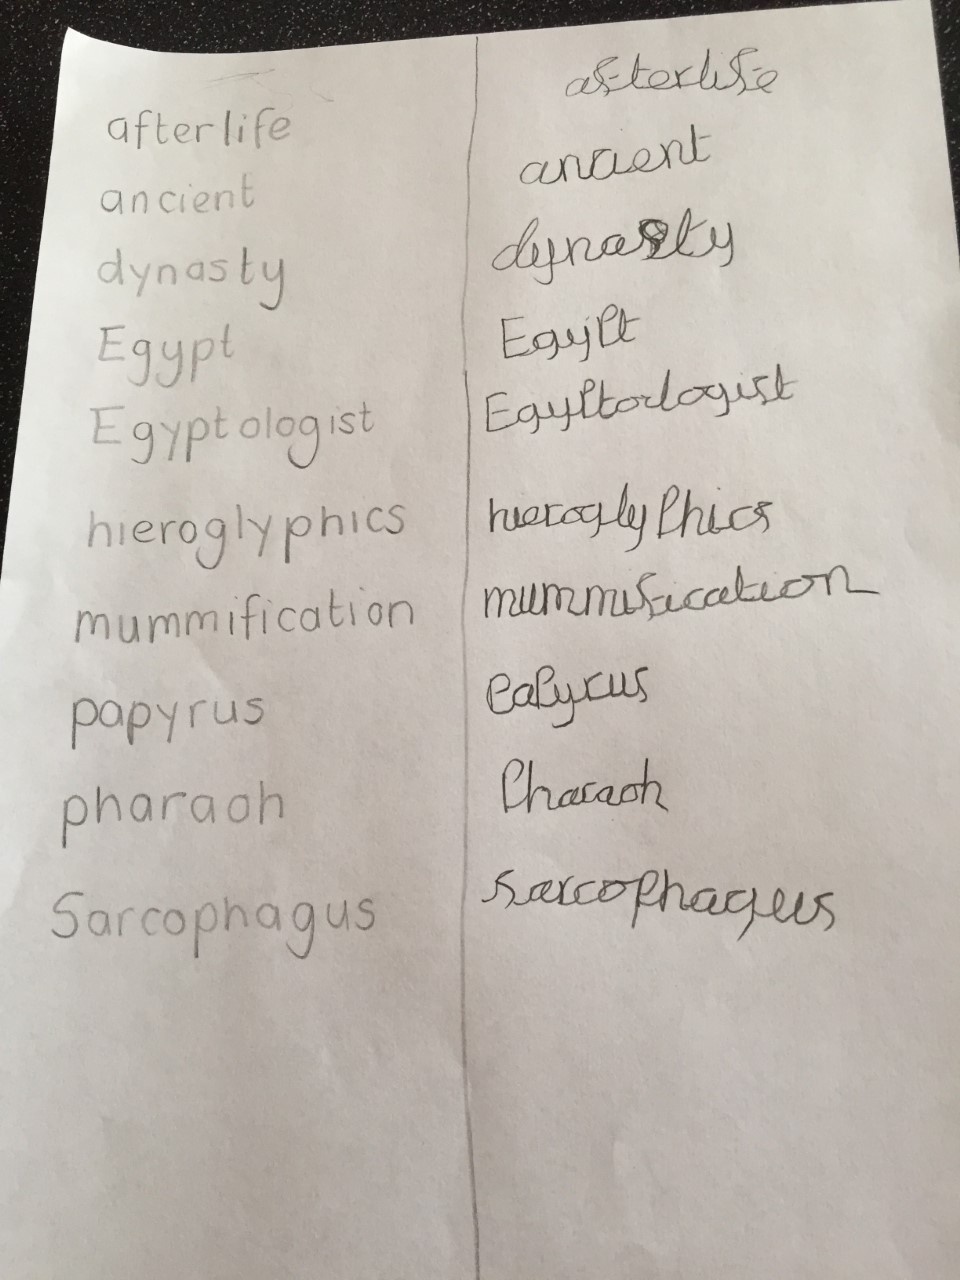 afterlife afterlife
ancient ancient
dynasty dynasty
Egypt Egypt
Egyptologist Egyptologist
hieroglyphics hieroglyphics
mummification mummification
papyrus papyrus
pharaoh Pharaoh
Sarcophagus Sarcophagus